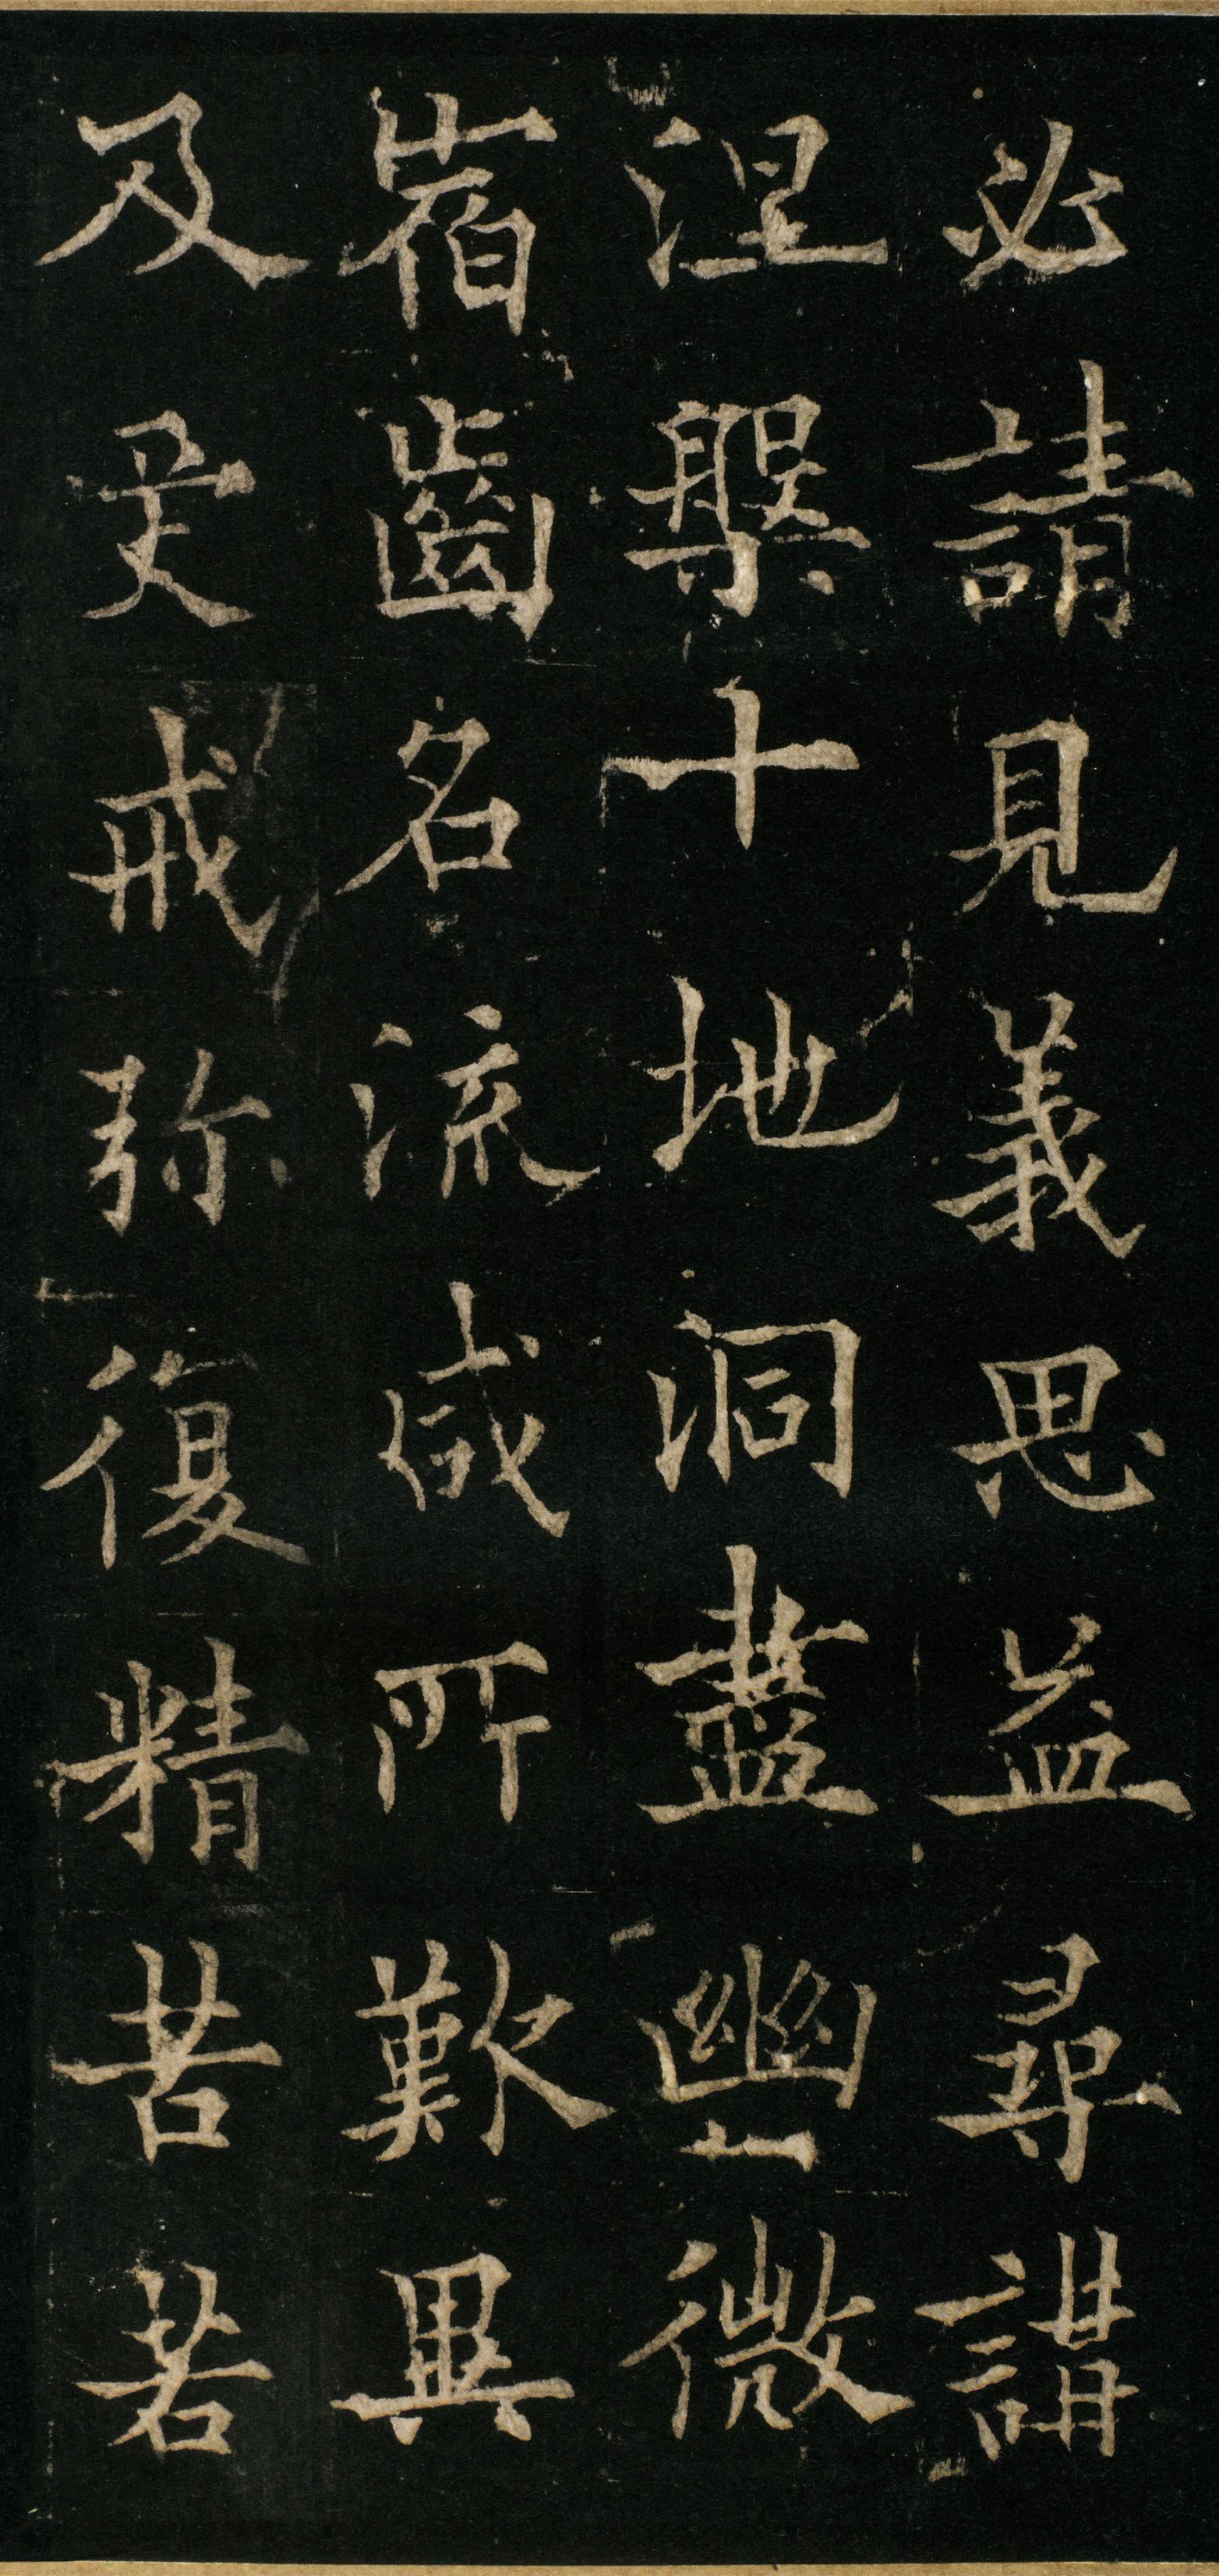 必請見義思益尋講
涅槃十地洞盡幽微
宿齒名流咸所歎異
及受戒弥復精苦若